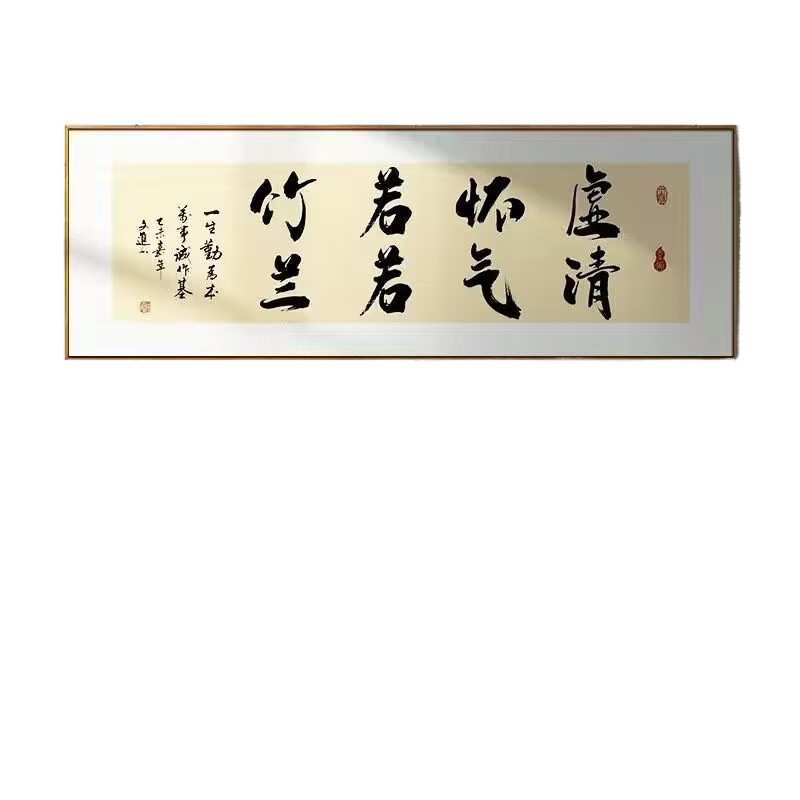 虚怀若竹
清气若兰
一生勤为本
万事诚作基
乙未嘉年